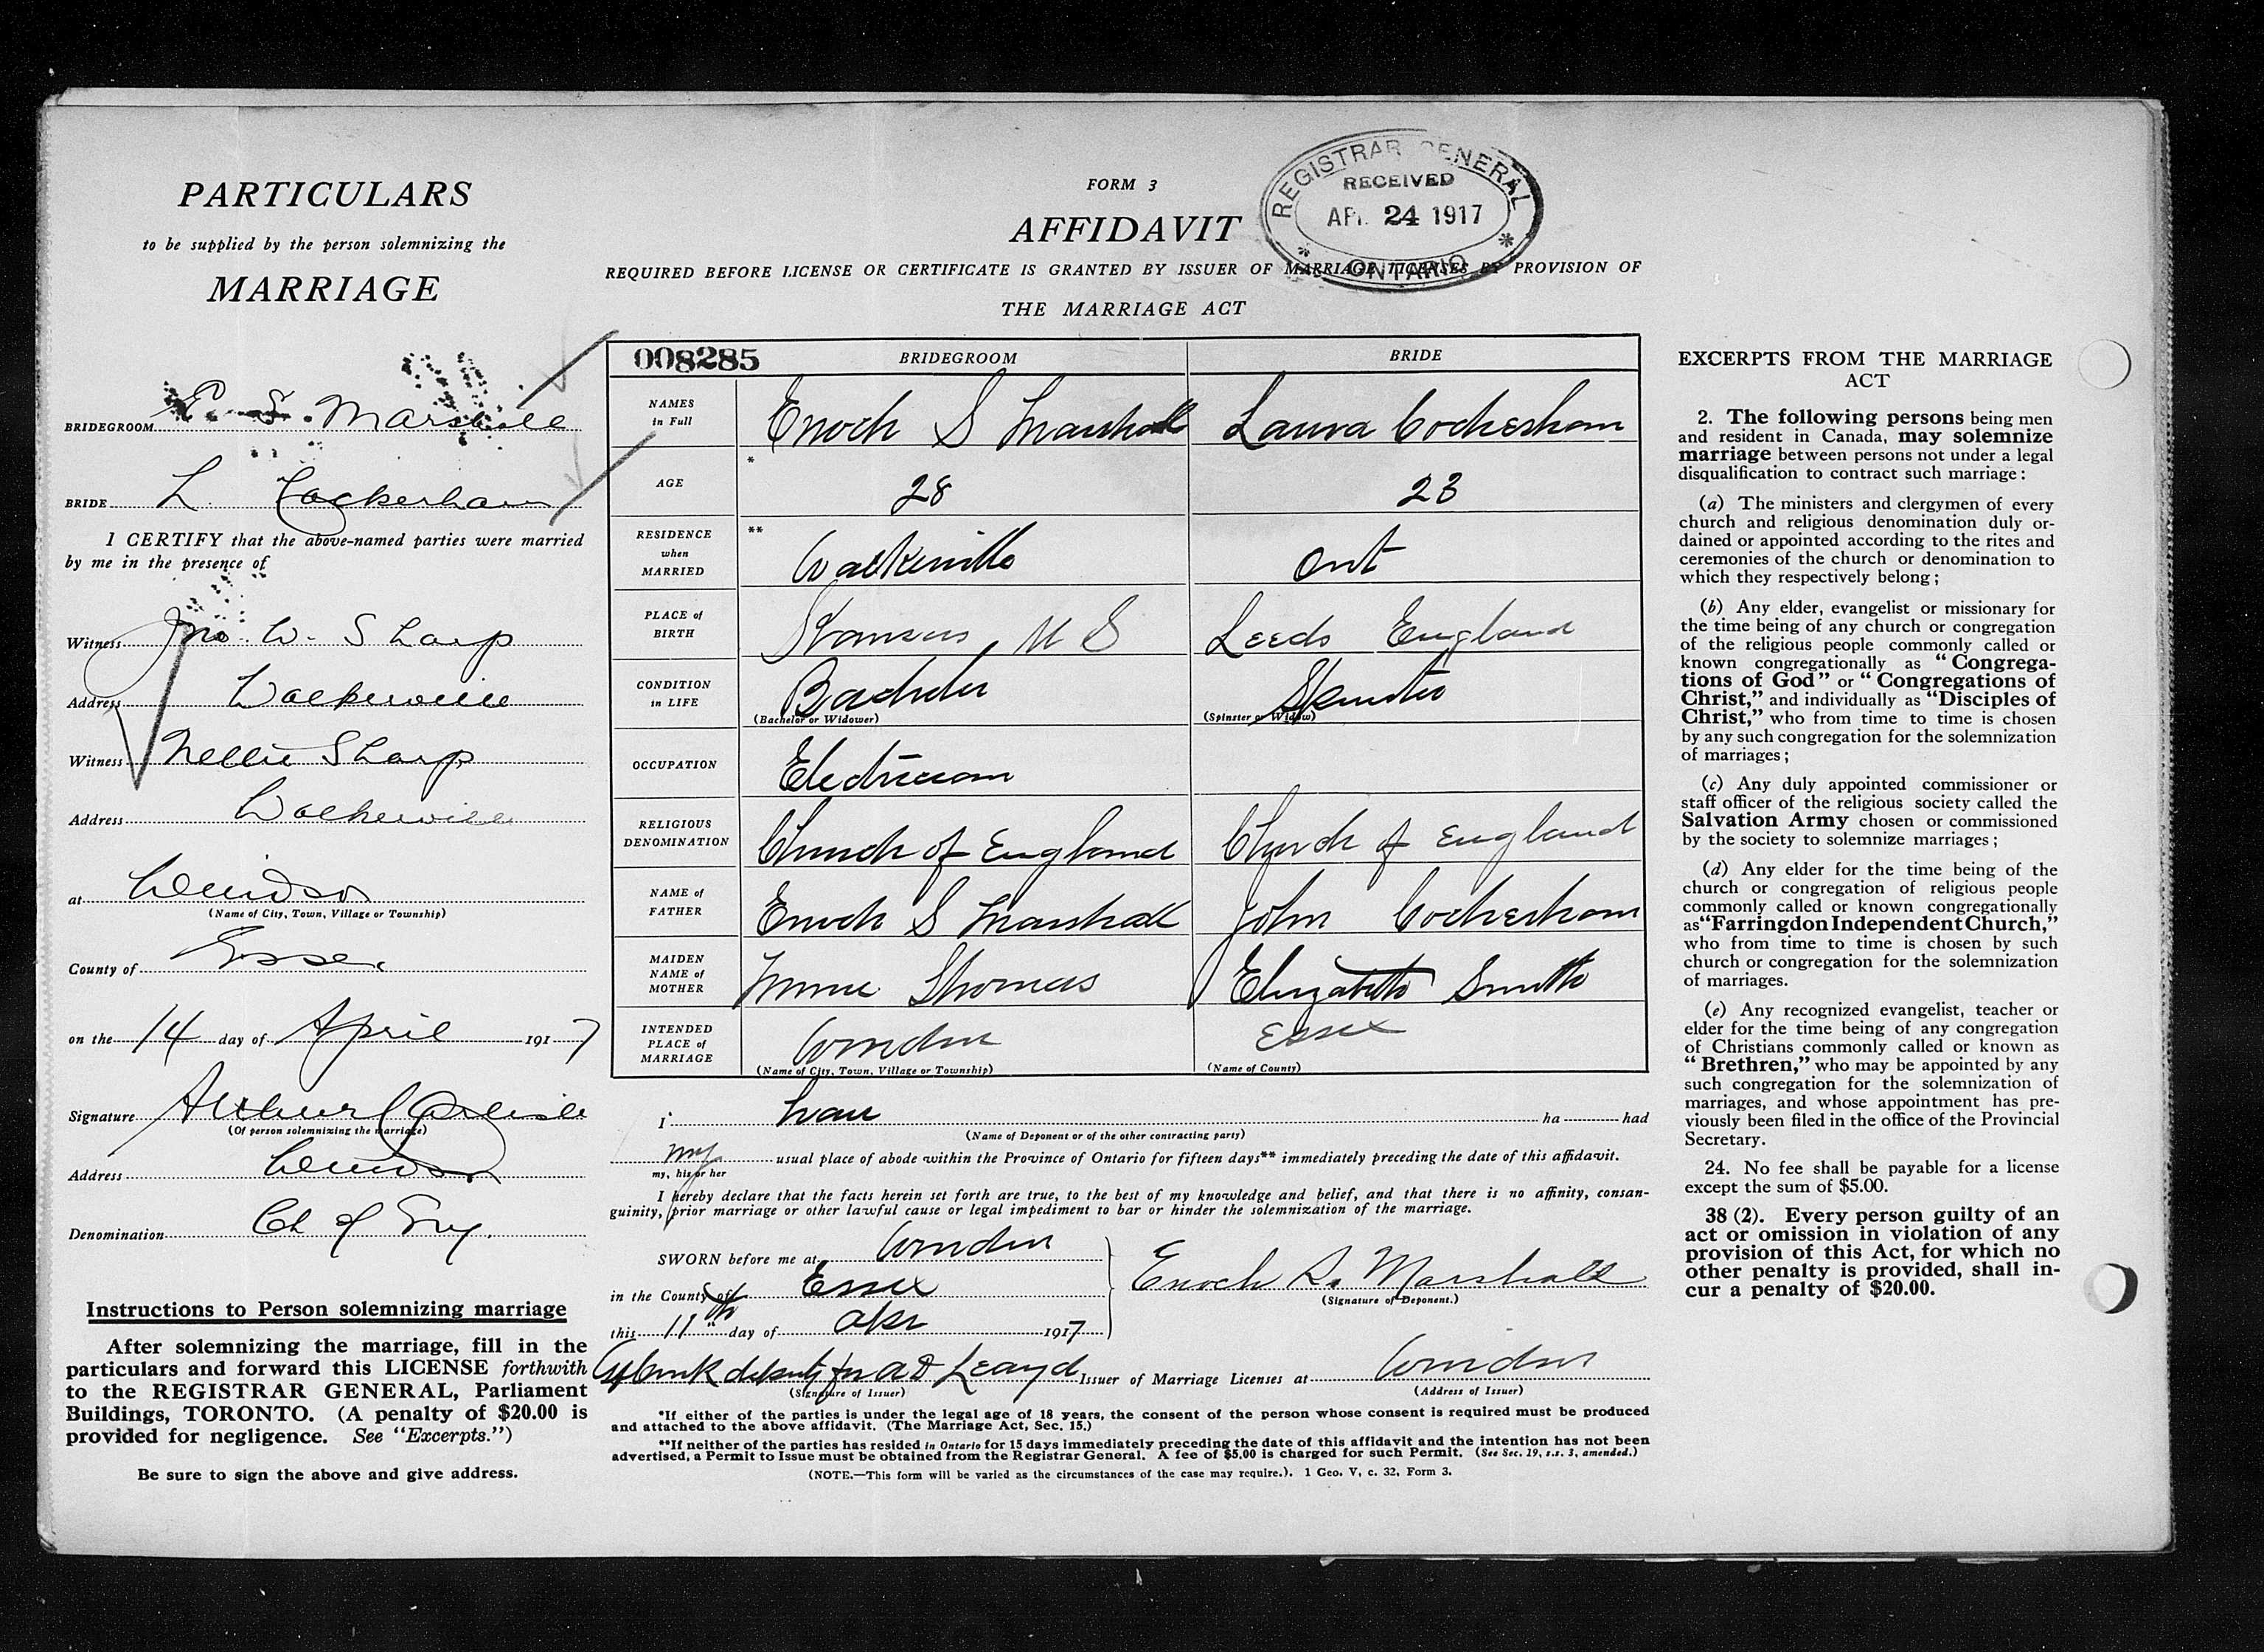 PARTICULARS
to be supplied by the person solemnizing the
MARRIAGE
BRIDEGROOM E. S. Marshall
BRIDE L. Cockerham
I CERTIFY that the above-named parties were married
by me in the presence of
Witness Jno. W. Sharp
Address Walkerville
Witness Nellie Sharp
Address Walkerville
at Windsor
(Name of City, Town, Village or Township)
County of Essex
on the 14 day of April 1917
Signature Arthur Carlisle
(Of person solemnizing the marriage)
Address Windsor
Denomination Ch of Eng.
Instructions to Person solemnizing marriage
After solemnizing the marriage, fill in the
particulars and forward this LICENSE forthwith
to the REGISTRAR GENERAL, Parliament
Buildings, TORONTO. (A penalty of $20.00 is
provided for negligence. See "Excerpts.")
Be sure to sign the above and give address.
FORM 3
AFFIDAVIT
REGISTRAR GENERAL
RECEIVED
APR. 24 1917
ONTARIO
REQUIRED BEFORE LICENSE OR CERTIFICATE IS GRANTED BY ISSUER OF MARRIAGE LICENSES BY PROVISION OF
THE MARRIAGE ACT
008285 BRIDEGROOM BRIDE
NAMES in Full Enoch S Marshall Laura Cockerham
AGE * 28 23
RESIDENCE when MARRIED ** Walkerville Ont
PLACE of BIRTH Kansas, U S Leeds England
CONDITION in LIFE Bachelor Spinster
(Bachelor or Widower) (Spinster or Widow)
OCCUPATION Electrician
RELIGIOUS DENOMINATION Church of England Church of England
NAME of FATHER Enoch S Marshall John Cockerham
MAIDEN NAME of MOTHER Thomas Elizabeth Smith
INTENDED PLACE of MARRIAGE Windsor Essex
(Name of City, Town, Village or Township) (Name of County)
I have ha had
(Name of Deponent or of the other contracting party)
my usual place of abode within the Province of Ontario for fifteen days** immediately preceding the date of this affidavit.
my, his or her
I hereby declare that the facts herein set forth are true, to the best of my knowledge and belief, and that there is no affinity, consan-
guinity, prior marriage or other lawful cause or legal impediment to bar or hinder the solemnization of the marriage.
SWORN before me at Windsor
in the County of Essex
this 11th day of Apr 1917
Enoch S. Marshall
(Signature of Deponent.)
deputy for A D Leayd Issuer of Marriage Licenses at Windsor
(Signature of Issuer) (Address of Issuer)
*If either of the parties is under the legal age of 18 years, the consent of the person whose consent is required must be produced
and attached to the above affidavit. (The Marriage Act, Sec. 15.)
**If neither of the parties has resided in Ontario for 15 days immediately preceding the date of this affidavit and the intention has not been
advertised, a Permit to Issue must be obtained from the Registrar General. A fee of $5.00 is charged for such Permit. (See Sec. 19, s.s. 3, amended.)
(NOTE.—This form will be varied as the circumstances of the case may require.). 1 Geo. V, c. 32, Form 3.
EXCERPTS FROM THE MARRIAGE
ACT
2. The following persons being men
and resident in Canada, may solemnize
marriage between persons not under a legal
disqualification to contract such marriage:
(a) The ministers and clergymen of every
church and religious denomination duly or-
dained or appointed according to the rites and
ceremonies of the church or denomination to
which they respectively belong;
(b) Any elder, evangelist or missionary for
the time being of any church or congregation
of the religious people commonly called or
known congregationally as "Congrega-
tions of God" or "Congregations of
Christ," and individually as "Disciples of
Christ," who from time to time is chosen
by any such congregation for the solemnization
of marriages;
(c) Any duly appointed commissioner or
staff officer of the religious society called the
Salvation Army chosen or commissioned
by the society to solemnize marriages;
(d) Any elder for the time being of the
church or congregation of religious people
commonly called or known congregationally
as "Farringdon Independent Church,"
who from time to time is chosen by such
church or congregation for the solemnization
of marriages.
(e) Any recognized evangelist, teacher or
elder for the time being of any congregation
of Christians commonly called or known as
"Brethren," who may be appointed by any
such congregation for the solemnization of
marriages, and whose appointment has pre-
viously been filed in the office of the Provincial
Secretary.
24. No fee shall be payable for a license
except the sum of $5.00.
38 (2). Every person guilty of an
act or omission in violation of any
provision of this Act, for which no
other penalty is provided, shall in-
cur a penalty of $20.00.